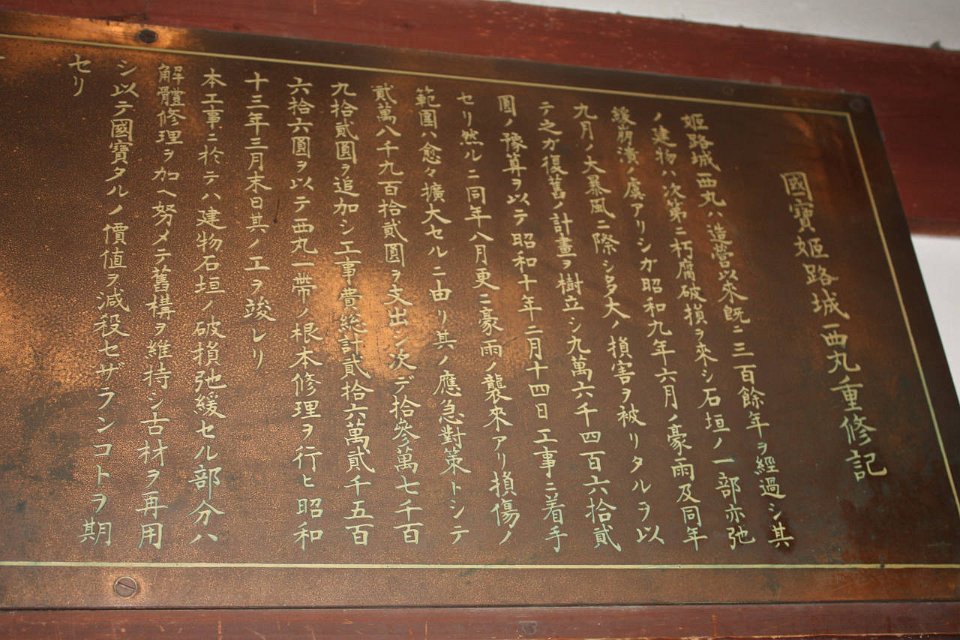 國寶姫路城西丸重修記
姫路城西丸ハ造營以來既ニ三百餘年ヲ經過シ其
ノ建物ハ次第ニ朽腐破損ヲ來シ石垣ノ一部亦弛
緩崩潰ノ虞アリシカ昭和九年六月ノ豪雨及同年
九月ノ大暴風ニ際シ多大ノ損害ヲ被リタルヲ以
テ之カ復舊ノ計畫ヲ樹立シ九萬六千四百六拾貳
圓ノ豫算ヲ以テ昭和十年二月十四日工事ニ着手
セリ然ルニ同年八月更ニ豪雨ノ襲來アリ損傷ノ
範圍ハ愈々擴大セルニ由リ其ノ應急對策トシテ
貳萬八千九百拾貳圓ヲ支出シ次デ拾參萬七千百
九拾貳圓ヲ追加シ工事費總計貳拾六萬貳千五百
六拾六圓ヲ以テ西丸一帶ノ根本修理ヲ行ヒ昭和
十三年三月末日其ノ工ヲ竣レリ
本工事ニ於テハ建物石垣ノ破損弛緩セル部分ハ
解體修理ヲ加ヘ努メテ舊構ヲ維持シ古材ヲ再用
シ以テ國寶タルノ價値ヲ減殺セザランコトヲ期
セリ